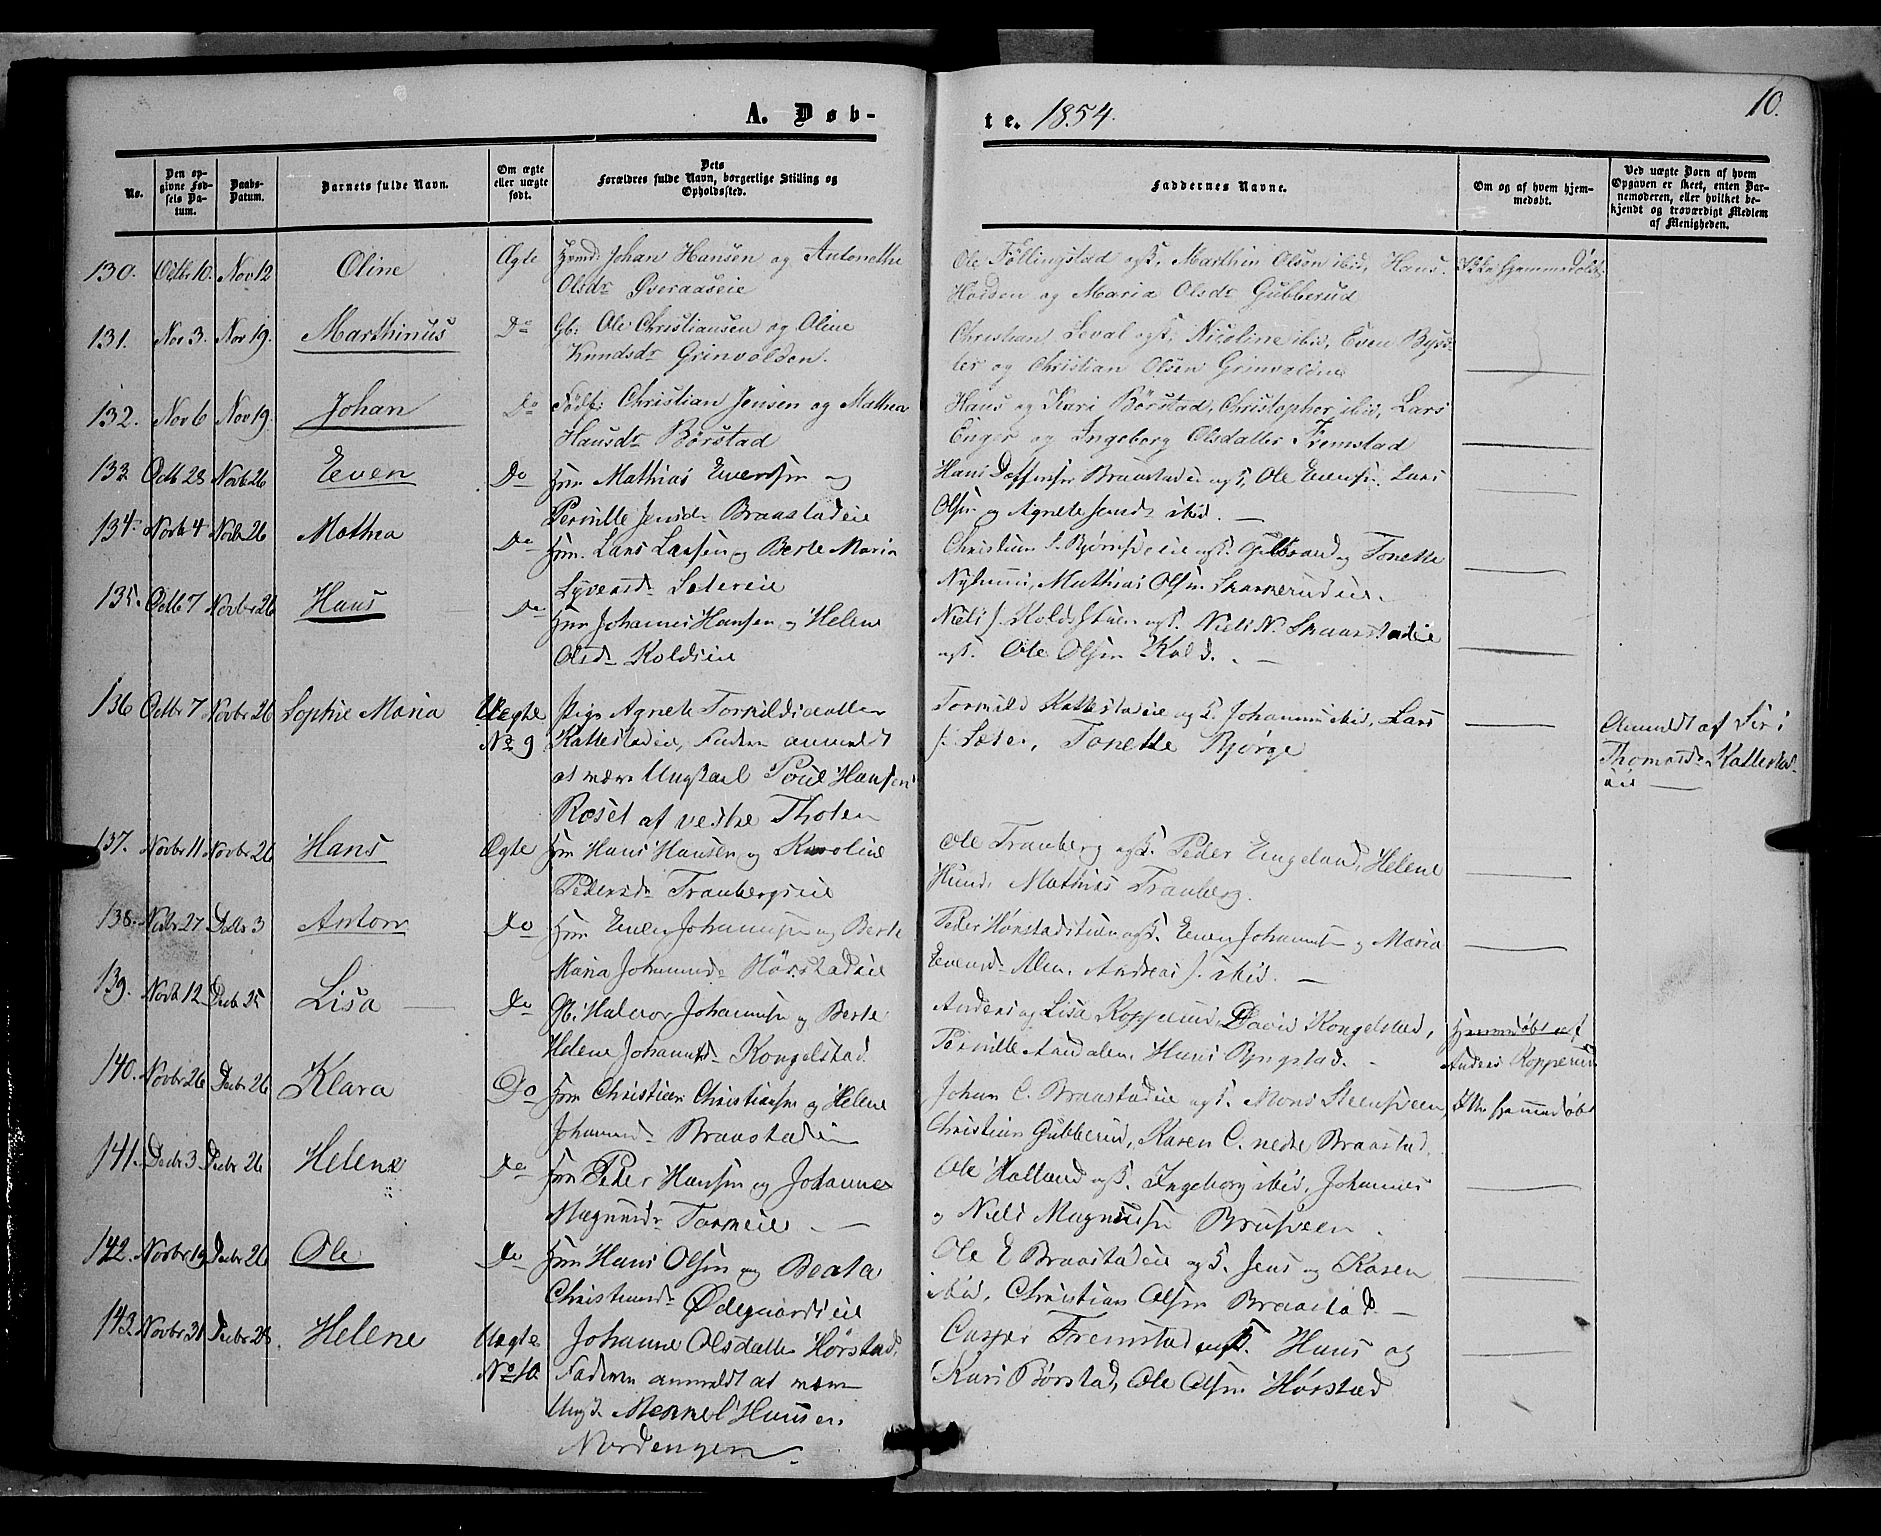 A. Døb-
te. 1854.
10.
No.
Den op-
givne Fød-
sels Da-
tum.
Daabs-
Datum.
Barnets fulde Navn.
Om ægte
eller uægte
født.
Dets
Forældres fulde Navn, borgerlige Stilling og
Opholdssted.
Faddernes Navne.
Om og af hvem hjem-
medøbt.
Ved uægte Børn af hvem
Opgaven er skeet, enten Bar-
nemoderen, eller hvilket be-
kjendt og troværdigt Medlem
af Menigheden.
130. Octbr 10. Nov 12 Oline Ægte Huusmd Johan Hansen og Antonette
Olsdr Øveraaseie
Ole Föllingstad ogK. Marthin Olsen ibid, Hans
og Maria Olsdr Gubberud
Ikke hjemmedøbt
131. Nov 3. Nov 19. Marthinus Do Gb: Ole Christiansen og Oline
Knudsdr Grinvolden.
Christian Seval ogK, Nicoline ibid, Even
og Christian Olsen Grinvolden
132. Nov 6 Nov 19. Johan Do Christian Jensen og Mathea
Hansdr Börstad
Hans og Kari Börstad, Christopher ibid, Lars
Enger og Ingeborg Olsdatter Fremstad
133 Octb 28 Novb 26 Even Do Hm Mathias Evensen og
Pernille Jensdr Braastadeie
Hans Braastadeie ogK, Ole Evensen Lars
Olsen og Agnete Jensdr ibid.
134 Novb 4 Novbr 26 Mathea Do Hm. Lars Larsen og Berte Maria
Syversdr Sætereie
Christian ogK. og Tonette
Mathias Olsen
135. Octb 7 Novbr 26 Hans Do Hm Johannes Hansen og Helene
Olsdr Koldseie
Niels J. ogK. Niels N.
ogK. Ole Olsen Kold.
136 Octbr 7 Novbr 26 Sophie Maria Uægte Pige Agnete Torkildsdatter
No 9 Kattestadeie, Faderen anmeldt
at være Ungkarl Poul Hansen
Roset af vestre Thoten
Kattestadeie ogK. Johannes ibid, Lars
Tonette Bjørge
Anmeldt af Siri
Thomasdr Kattestad-
eie
137. Novbr 11 Novbr 26 Hans Ægte Hm Hans Hansen og Karoline
Pedersdr Tranbergseie
Ole Tranberg ogK. Peder Engeland, Helene
Hund, Mathias Tranberg.
138. Novbr 27 Decbr 3 Anton Do Hm Even Johannsen og Berte
Maria Johannesdr Hørstadeie
Peder ogK. Even Johannsen og Maria
Evensdr Andreas J. ibid.
139. Novb 12 Decbr 25 Lisa Do Gb. Halvor Johannsen og Berte
Helene Johannesdr Kongelstad
Anders og Lisa Kopperud, David Kongelstad,
Pernille Hans Ryngstad.
Hjemmedøbt af
Anders Kopperud
140. Novbr 26 Decbr 26 Klara Do Hm Christian Christiansen og Helene
Johannesdr Braastadeie
Johan C. Braastadeie ogK. Mons Steensveen,
Christian Gubberud, Karen C. nedre Braastad.
Ikke hjemmedøbt
141. Decbr 3 Decbr 26 Helene Do Hm Peder Hansen og Johanne
Magnusdr
Ole ogK. Ingeborg ibid, Johannes
og Niels Magnusen Brusveen.
142. Novbr 19 Decbr 26 Ole Do Hm Hans Olsen og Beata
Christiansdr Ødegaardseie
Ole E Braastadeie ogK. Jens og Karen
ibid, Christian Olsen Braastad.
143. Novbr 31 Decbr 28. Helene Uægte Johanne Olsdatter Hørstad,
No 10 Faderen anmeldt at være
Ungk. Hansen
Nordengen.
Casper Fremstad ogK. Hans og
Kari Börstad, Ole Olsen Hørstad